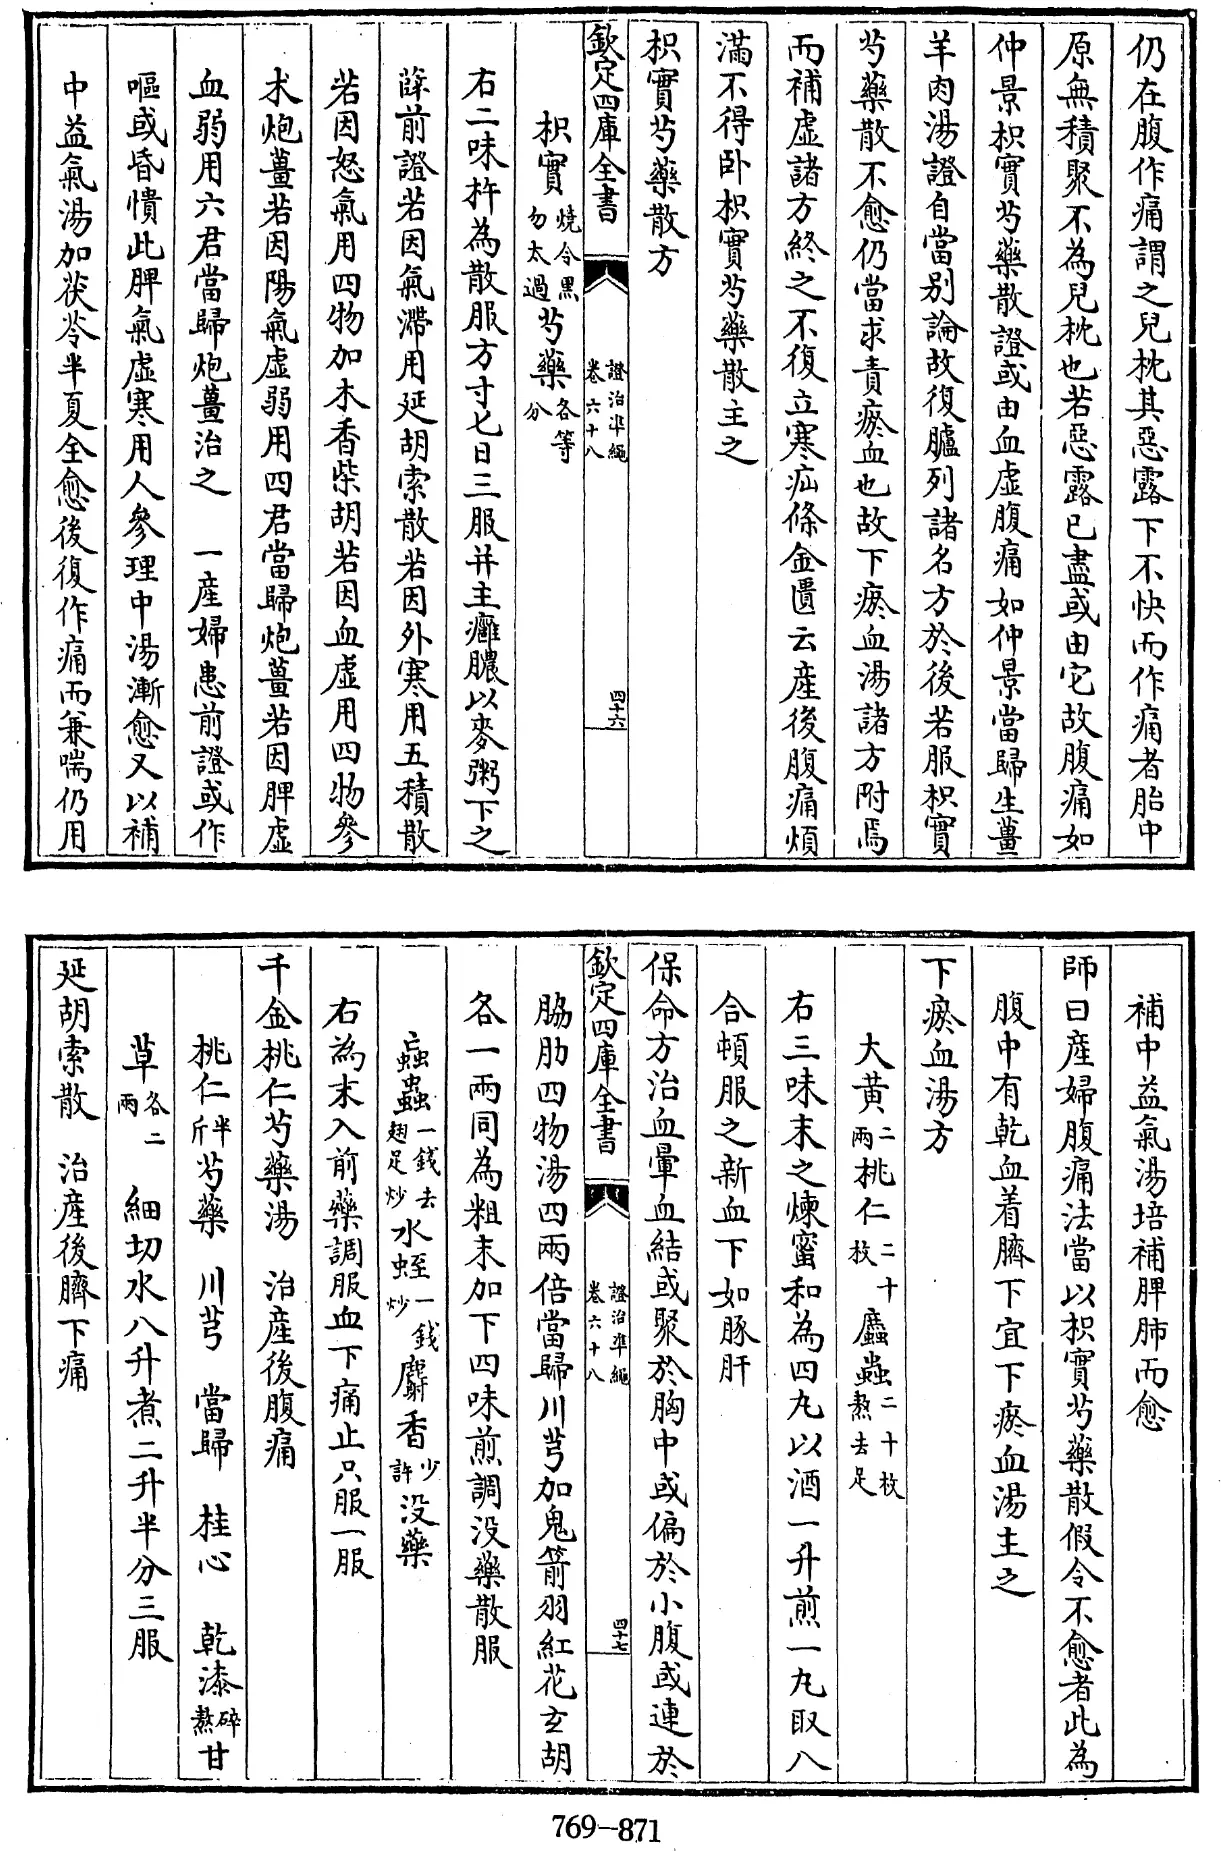 仍在腹作痛謂之兒枕其惡露下不快而作痛者胎中
原無積聚不為兒枕也若惡露已盡或由它故腹痛如
仲景枳實芍藥散證或由血虛腹痛如仲景當歸生薑
羊肉湯證自當别論故復臚列諸名方於後若服枳實
芍藥散不愈仍當求責瘀血也故下瘀血湯諸方附焉
而補虛諸方終之不復立寒疝條金匱云產後腹痛煩
滿不得卧枳實芍藥散主之
枳實芍藥散方
欽定四庫全書
證治準繩
卷六十八
四十六
枳實燒令黑勿太過芍藥各等分
右二味杵為散服方寸匕日三服并主癰膿以麥粥下之
薛前證若因氣滯用延胡索散若因外寒用五積散
若因怒氣用四物加木香柴胡若因血虛用四物參
术炮薑若因陽氣虛弱用四君當歸炮薑若因脾虛
血弱用六君當歸炮薑治之　一產婦患前證或作
嘔或昏憒此脾氣虛寒用人參理中湯漸愈又以補
中益氣湯加茯苓半夏全愈後復作痛而兼喘仍用
補中益氣湯培補脾肺而愈
師曰產婦腹痛法當以枳實芍藥散假令不愈者此為
腹中有乾血着臍下宜下瘀血湯主之
下瘀血湯方
大黃二兩桃仁二十枚䗪蟲二十枚熬去足
右三味末之煉蜜和為四丸以酒一升煎一丸取八
合頓服之新血下如豚肝
保命方治血暈血結或聚於胸中或偏於小腹或連於
欽定四庫全書
證治準繩
卷六十八
四十七
脇肋四物湯四兩倍當歸川芎加鬼箭羽紅花玄胡
各一兩同為粗末加下四味煎調没藥散服
䖟蟲一錢去翅足炒水蛭一錢炒麝香少許没藥
右為末入前藥調服血下痛止只服一服
千金桃仁芍藥湯　治產後腹痛
桃仁半斤芍藥　川芎　當歸　桂心　乾漆碎熬甘
草各二兩　細切水八升煮二升半分三服
延胡索散　治產後臍下痛
769-871